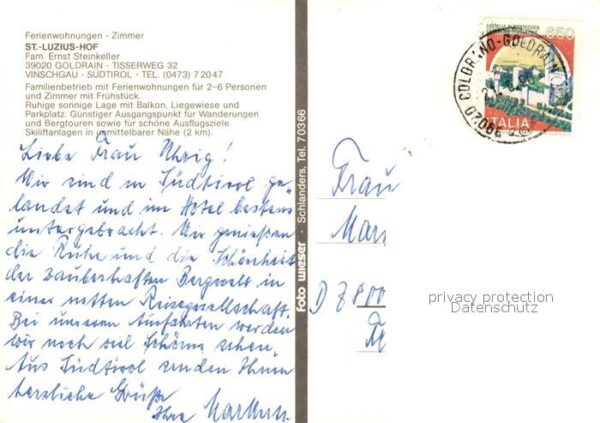 Ferienwohnungen - Zimmer
ST.-LUZIUS-HOF
Fam. Ernst Steinkeller
39020 GOLDRAIN - TISSERWEG 32
VINSCHGAU - SÜDTIROL - TEL. (0473) 72047
Familienbetrieb mit Ferienwohnungen für 2-6 Personen
und Zimmer mit Frühstück.
Ruhige sonnige Lage mit Balkon, Liegewiese und
Parkplatz. Günstiger Ausgangspunkt für Wanderungen
und Bergtouren sowie für schöne Ausflugsziele.
Skiliftanlagen in unmittelbarer Nähe (2 km).
Liebe Frau Uhrig!
Wir sind in Südtirol ge-
landet und im Hotel bestens
untergebracht. Wir genießen
die Ruhe und die Schönheit
der zauberhaften Bergwelt in
einer netten Reisegesellschaft.
Bei unseren Ausfahrten werden
wir noch viel Schönes sehen.
Aus Südtirol senden Ihnen
herzliche Grüße
Ihre
foto wieser · Schlanders, Tel. 70366
650
ITALIA
39020 COLDRANO-GOLDRAIN
Frau
Mar
D 7800
privacy protection
Datenschutz